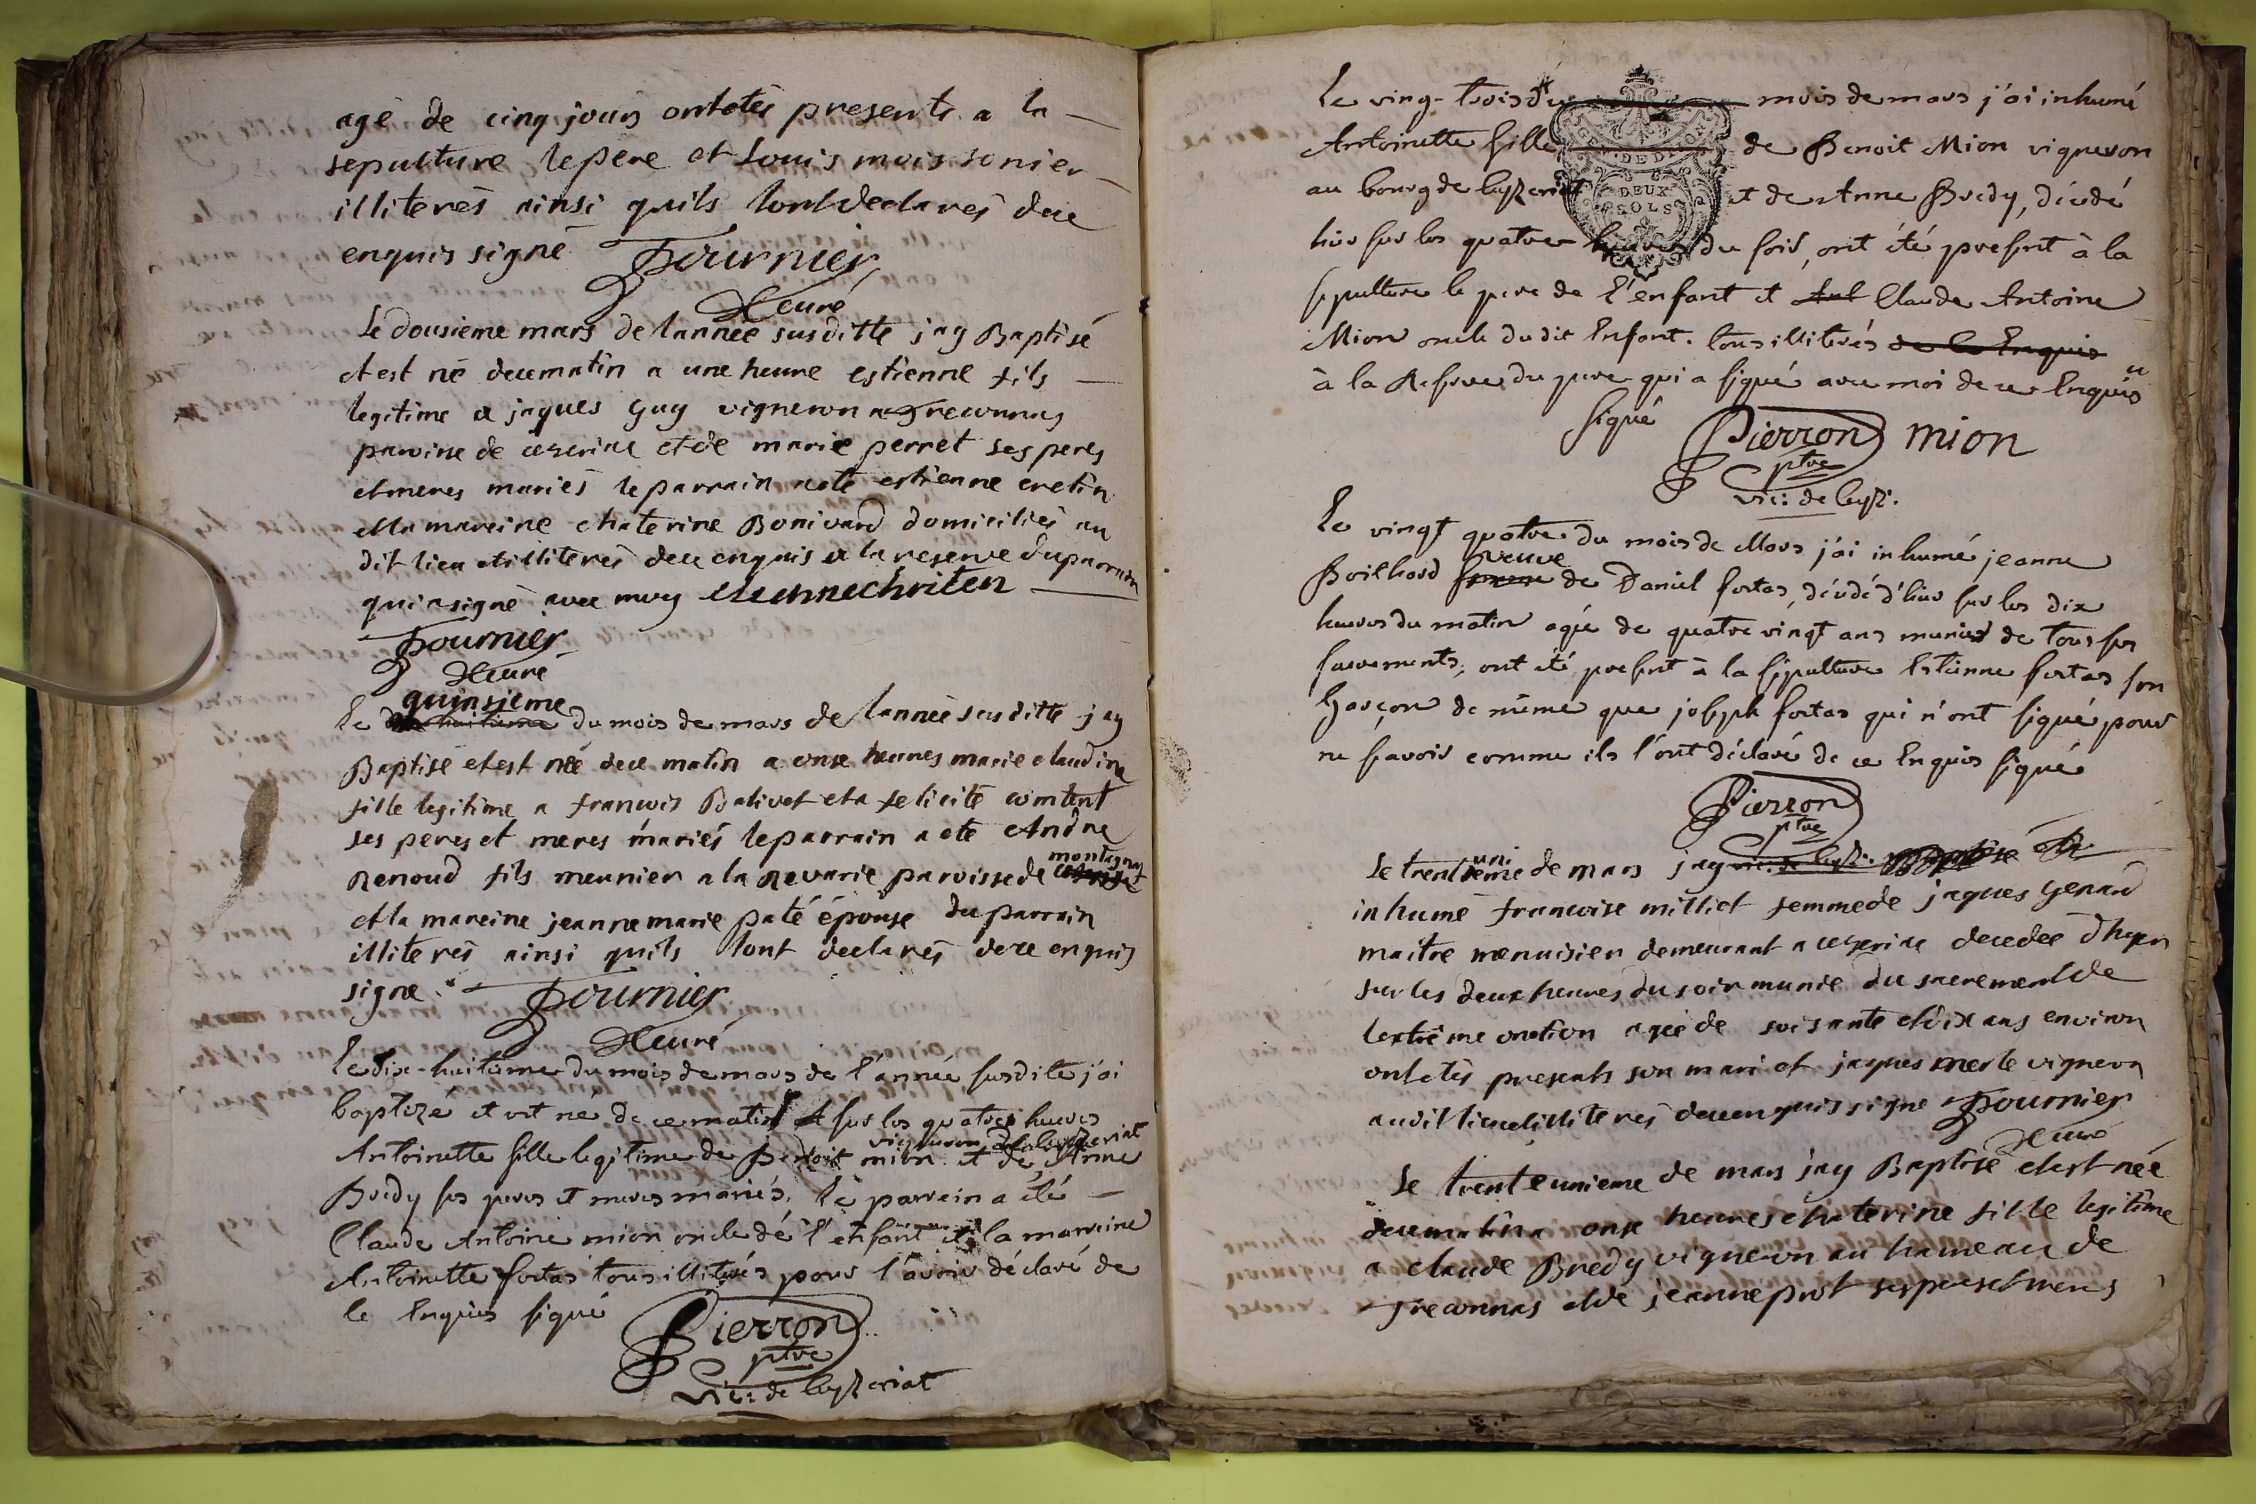 agé de cinq jours ont etés presents a la
sepulture le pere et Louis mois sonier
illiterés ainsi quils lont declarés dece
enquis signé Fournier
Curé
Le dousieme mars de lannée susditte jay Baptisé
et est né dece matin a une heure estienne fils
legitime a jaques Guy vigneron a Treconnas
paroisse de ceseriac et de marie perret ses peres
et meres mariés le parrain a eté estienne cretin
et la mareine chaterine Bonivard domiciliés au
dit lieu et illiterés dece enquis a la reserve du parrain
qui a signé avec moy
Fournier
Curé
quinsieme
Le dix huitieme du mois de mars de lannée susditte jay
Baptisé et est née dece matin a onse heures marie claudine
fille legitime a francois Balivet et a felicité comtent
ses peres et meres mariés le parrain a eté Andre
montagnat
Renoud fils meunier a la Revarie paroisse de
et la mareine jeanne marie paté épouse du parrain
illiterés ainsi quils lont declarés dece enquis
signe Fournier
Curé
Le dix-huitieme du mois de mars de l'année susdite j'ai
baptizé et est né de ce matin sur les quatres heures
vigneron de Ceyzeriat
Antoinette fille legitime de Benoit mion et de Anne
Bredy ses peres et meres mariés, le parrein a été
Claude Antoine mion oncle de l'enfant et la marreine
Antoinette fortas tous illiterés pour l'avoir déclaré de
ce Enquis signé
Pierron
ptre
vic: de Ceyzeriat
Le ving-trois du mois de mars j'ai inhumé
Antoinette fille de Benoit Mion vigneron
au bourg de Ceyzeriat et de Anne Bredy, décédé
hier sur les quatre heures du soir, ont été present à la
sepulture le pere de l'enfant et Ant Claude Antoine
Mion oncle du dit Enfant. tous illiterés de ce Enquis
à la Reserve du pere qui a signé avec moi de ce Enquis
signé
Pierron mion
ptre
vic: de Ceyz:
GEN. DE DIJON
DEUX
SOLS
Le vingt quatre du mois de Mars j'ai inhumé jeanne
veuve
Boilhard femme de Daniel fortas, décédé d'hier sur les dix
heures du matin agée de quatre vingt ans munies de tous ses
sacrements, ont été present à la sépulture Estienne fortas son
Garçon de même que joseph fortas qui n'ont signé pour
ne savoir comme ils l'ont déclaré de ce Enquis signé
Pierron
ptre
vic: de Ceyz:
uni
Le trentieme de mars jay Baptisé
inhumé francoise milliet femme de jaques Genard
maitre menuisier demeurant a ceseriac decedée d'hyer
sur les deux heures du soir munie du sacrement de
lextrême onction agée de soisante et dix ans environ
ont etés presents son mari et jaques merle vigneron
audit lieu illiterés dece enquis signe Fournier
Curé
Le trente unieme de mars jay Baptisé et est née
dece matin a onse heures chaterine fille legitime
a claude Bredy vigneron au hameau de
Treconnas et de jeanne prost ses peres et meres